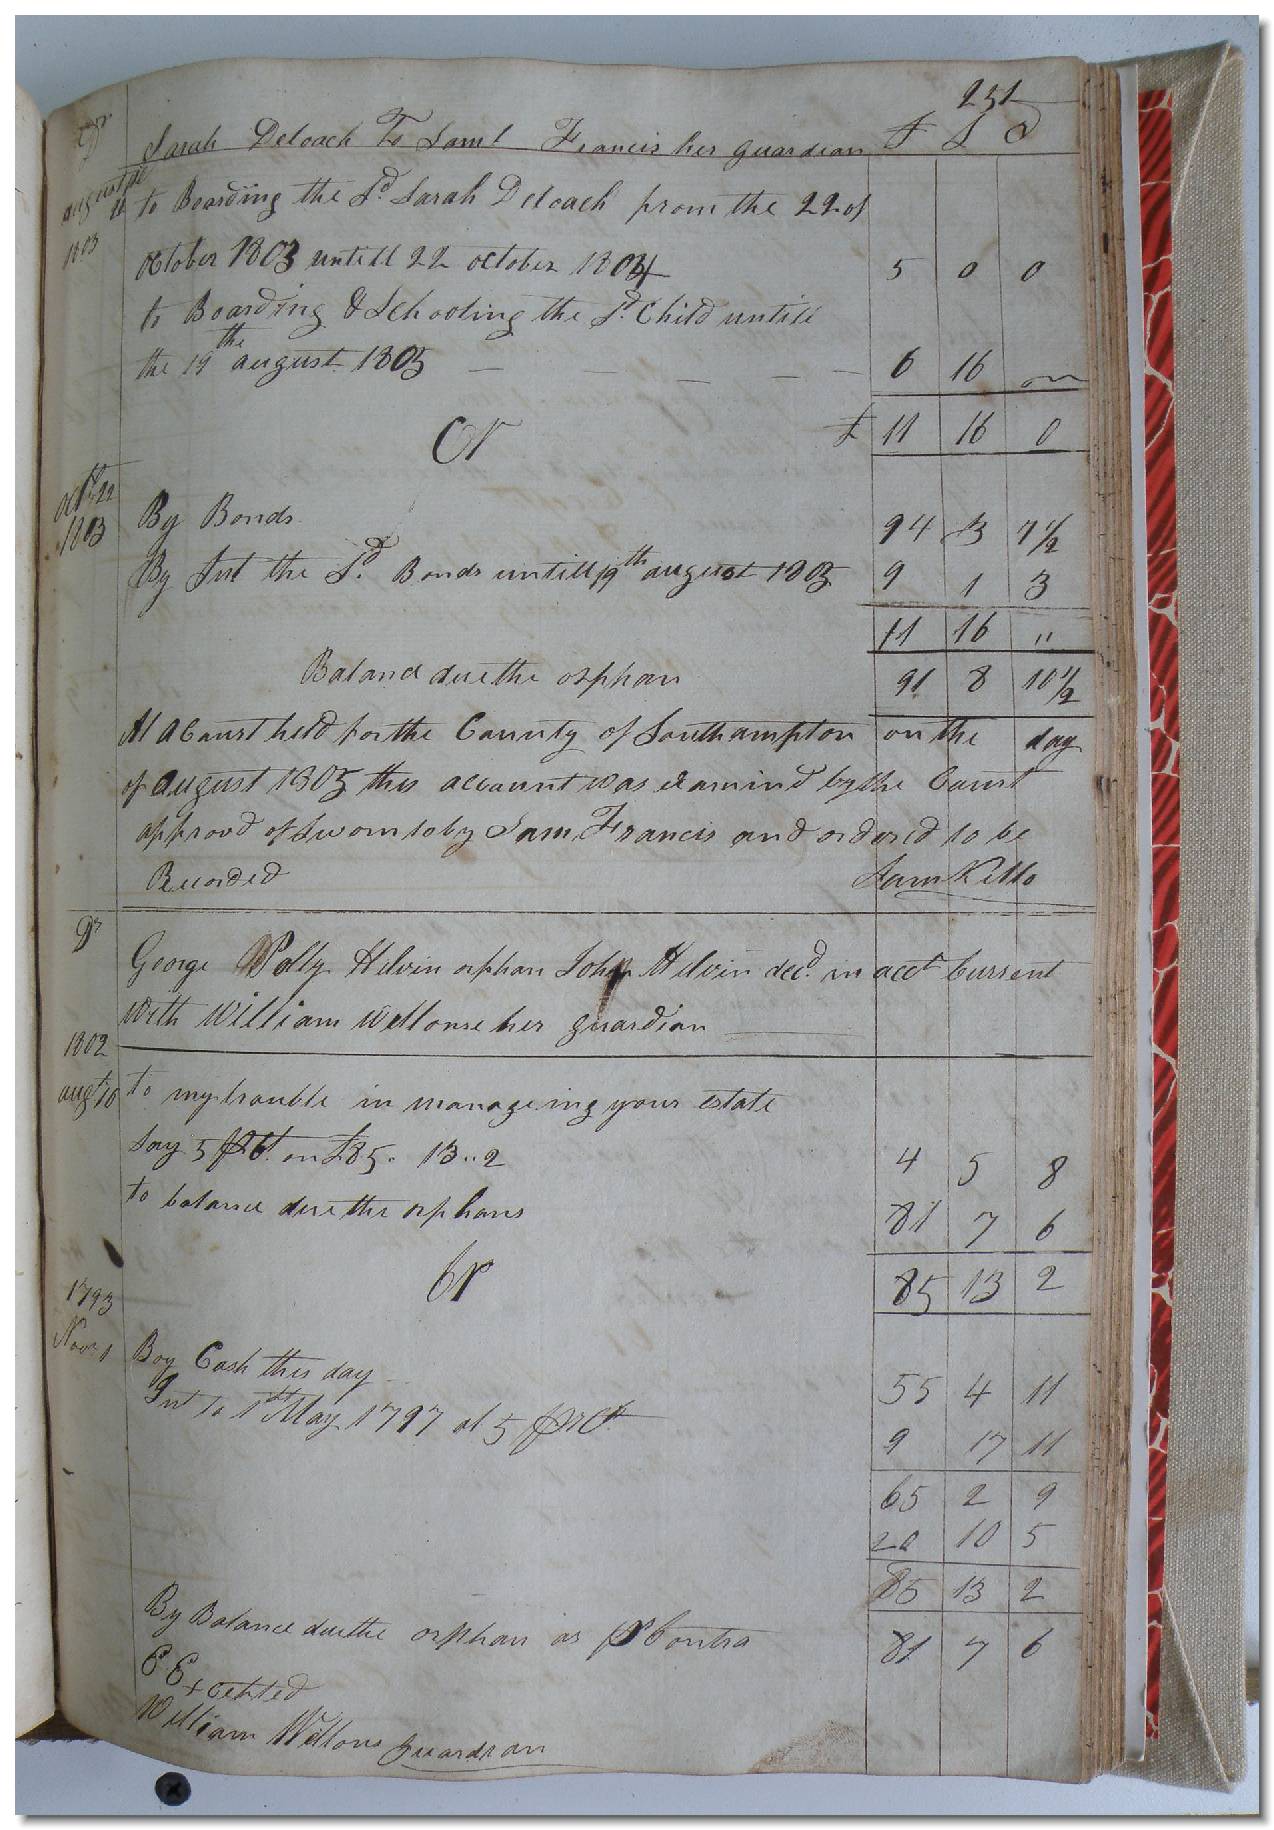 251
Dr Sarah Deloach To Saml Francis her guardian £ S d
august
18 to Boarding the Sd. Sarah Deloach from the 22 of
1803
October 1803 untill 22 october 1804 5 0 0
to Boarding & Schooling the Sd. Child untill
the 19th august 1805 — — — — — 6 16 on
£ 11 16 0
Cr
Octr 22
1803 By Bonds 94 3 7 1/2
By Int the Sd. Bonds untill 19th august 1805 9 1 3
11 16 "
Baland due the orphan 91 8 10 1/2
At a Court held for the County of Southampton on the day
of august 1805 this account was examind by the Court
approvd of Sworn to by Sam Francis and orderd to be
Recorded Sam Kello
Dr
George Polly Hilvin orphan John Hilvin decd. in acct Current
With William Wellons her guardian
1802
augt 16 to my trouble in manageing your estate
Say 5 pCt. on £85. 13..2 4 5 8
to balance due the orphans 81 7 6
85 13 2
Cr
1793
Novr 1 Boy Cash this day 55 4 11
Int to 1st May 1797 at 5 prCt 9 17 11
65 2 9
20 10 5
85 13 2
By Balance due the orphan as pr Contra 81 7 6
E Excepted
William Wellons guardian